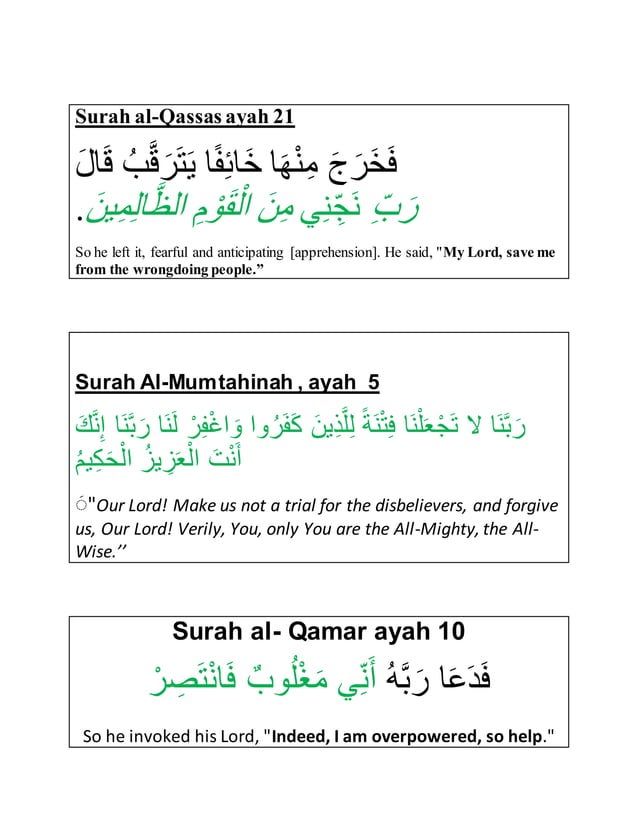 Surah al-Qassas ayah 21
فَخَرَجَ مِنْهَا خَائِفًا يَتَرَقَّبُ قَالَ
رَبِّ نَجِّنِي مِنَ الْقَوْمِ الظَّالِمِينَ.
So he left it, fearful and anticipating [apprehension]. He said, "My Lord, save me
from the wrongdoing people.”
Surah Al-Mumtahinah , ayah 5
رَبَّنَا لا تَجْعَلْنَا فِتْنَةً لِلَّذِينَ كَفَرُوا وَاغْفِرْ لَنَا رَبَّنَا إِنَّكَ
أَنْتَ الْعَزِيزُ الْحَكِيمُ
َ"Our Lord! Make us not a trial for the disbelievers, and forgive
us, Our Lord! Verily, You, only You are the All-Mighty, the All-
Wise.’’
Surah al- Qamar ayah 10
فَدَعَا رَبَّهُ أَنِّي مَغْلُوبٌ فَانْتَصِرْ
So he invoked his Lord, "Indeed, I am overpowered, so help."